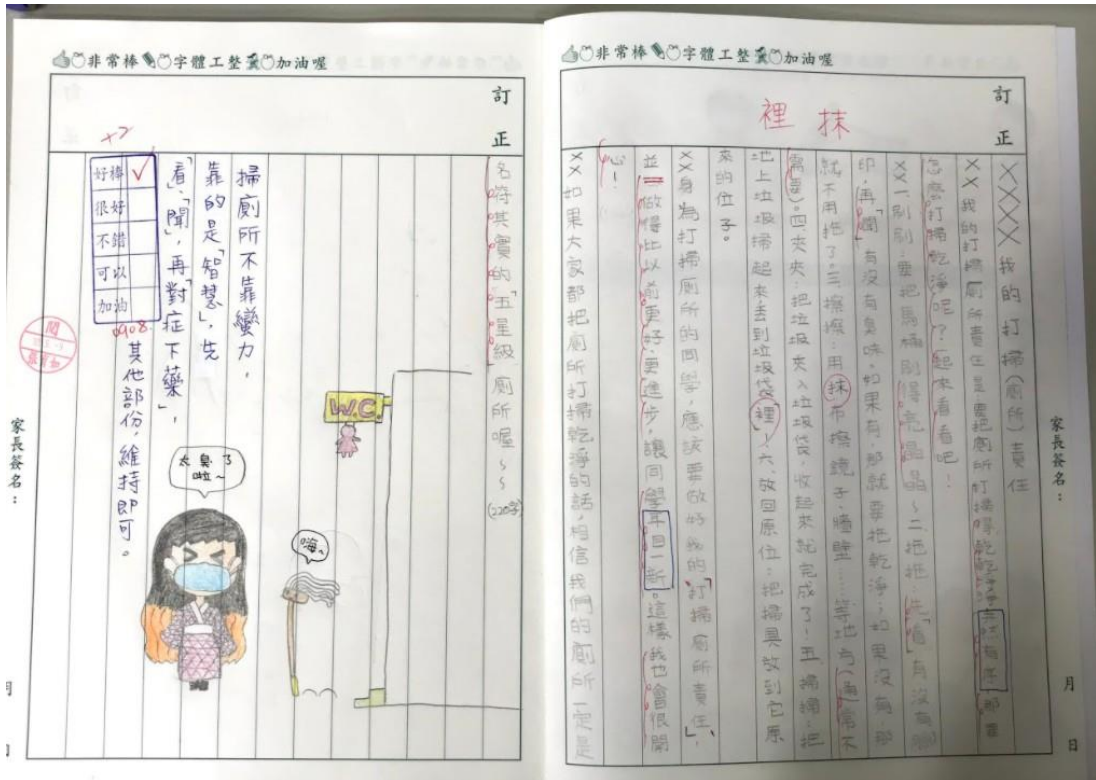 非常棒 字體工整 加油喔
訂正
裡 抹
家長簽名：
月 日
XXXX我的打掃(廁所)責任
XX我的打掃廁所責任是:要把廁所打掃得乾乾淨淨、井然有序,那要
怎麼打掃乾淨呢?一起來看看吧!
XX一刷刷:要把馬桶刷得亮晶晶~二拖拖:先「看」有沒有腳
印,再「聞」有沒有臭味,如果有,那就要拖乾淨;如果沒有,那
就不用拖了。三擦擦:用抹布擦鏡子、牆壁……等地方(通常不
需要)。四夾夾:把垃圾夾入垃圾袋,收起來就完成了!五掃掃:把
地上垃圾掃起來丟到垃圾袋裡!六放回原位:把掃具放到它原
來的位子。
XX身為打掃廁所的同學,應該要做好我的「打掃廁所責任」,
並做得比以前更好、更進步,讓同學耳目一新。這樣我也會很開
心!
XX如果大家都把廁所打掃乾淨的話,相信我們的廁所一定是
非常棒 字體工整 加油喔
訂正
名符其實的「五星級」廁所喔~~(220字)
W.C.
嗨~
太臭了
啦~
掃廁所不靠蠻力,
靠的是「智慧」,先
「看」、「聞」,再「對症下藥」,
其他部份,維持即可。
+2
好棒 ✓
很好
不錯
可以
加油
0908
閱
家長簽名：
月